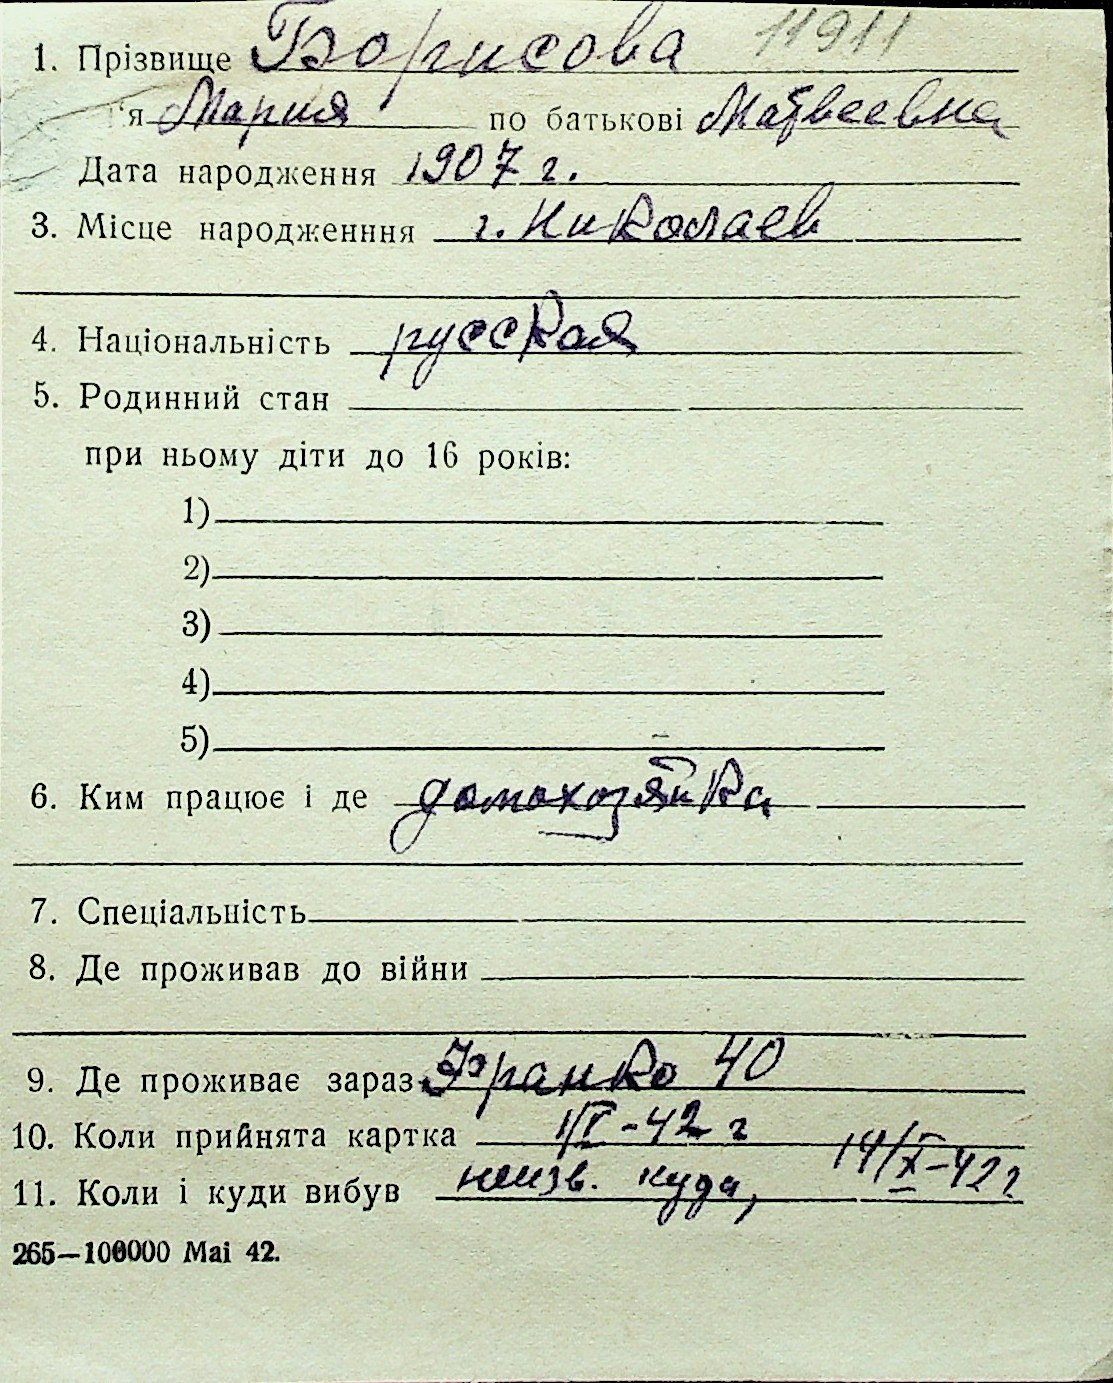 1. Прізвище Борисова 11911
'я Мария по батькові Матвеевна
Дата народження 1907 г.
3. Місце народженння г. Николаев
4. Національність русская
5. Родинний стан
при ньому діти до 16 років:
1)
2)
3)
4)
5)
6. Ким працює і де домохозяйка
7. Спеціальність
8. Де проживав до війни
9. Де проживає зараз Франко 40
10. Коли прийнята картка -42 г
11. Коли і куди вибув неизв. куда, 14/X-42 г
265—100000 Mai 42.